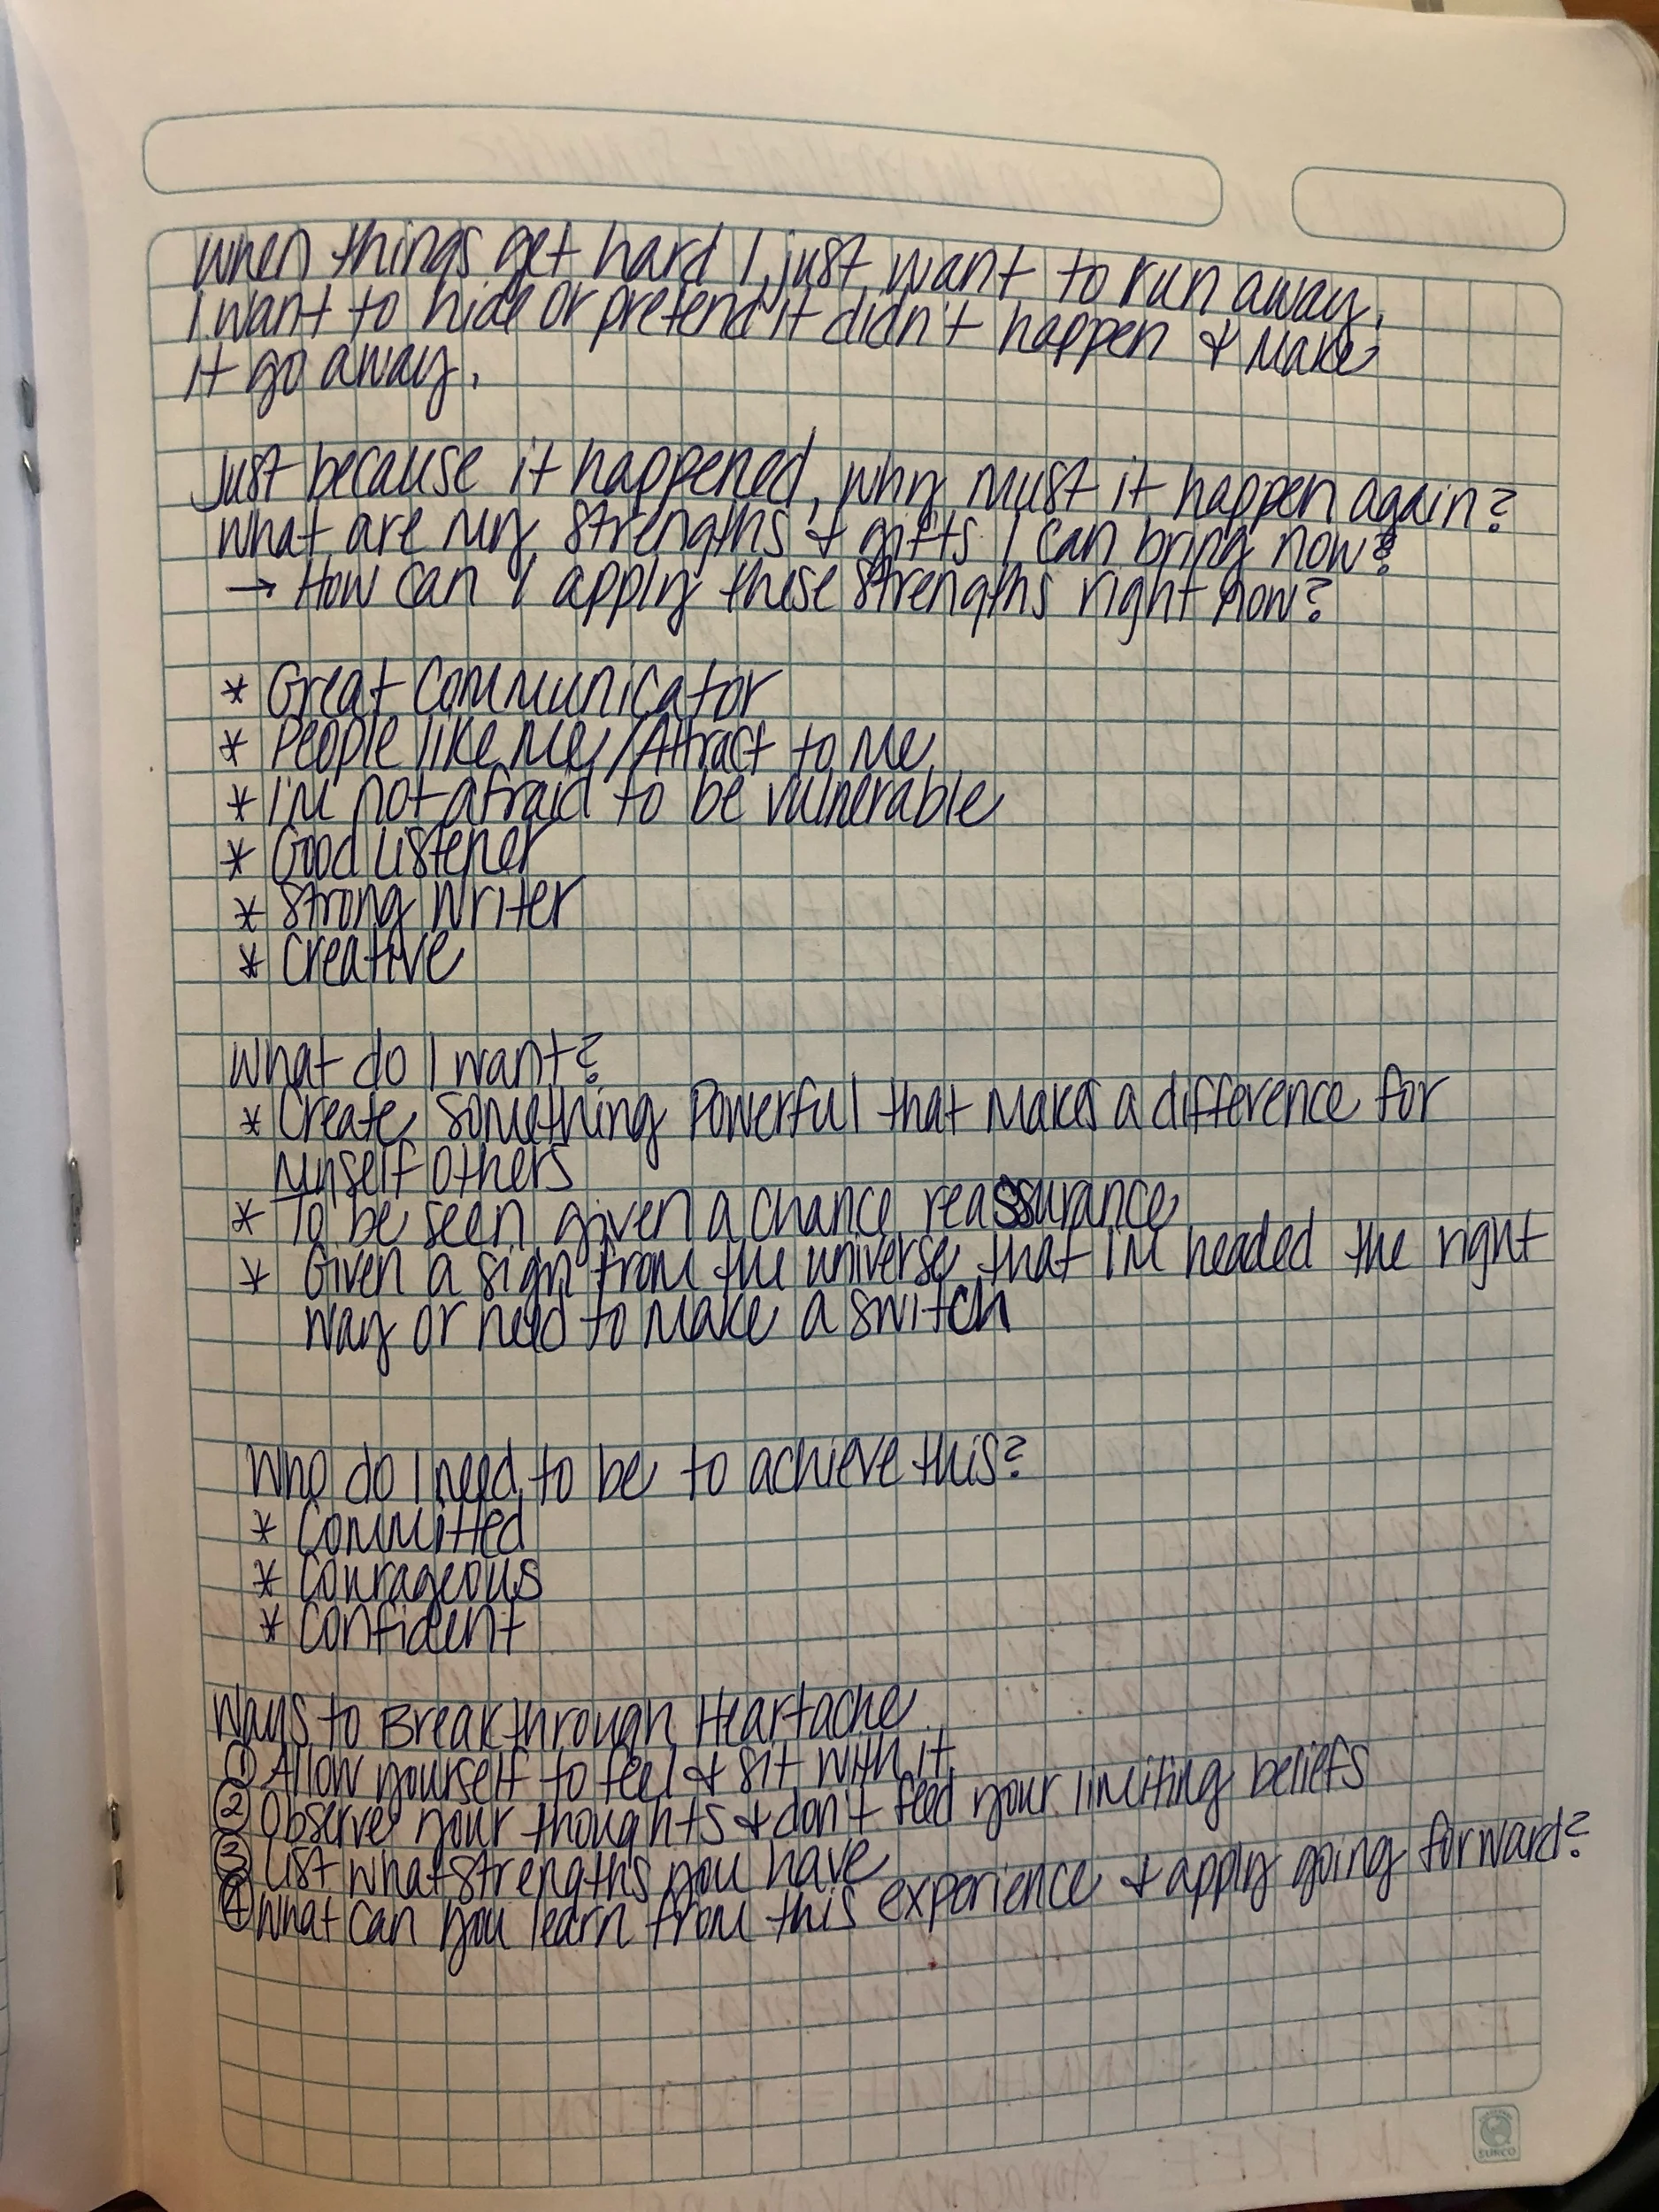 When things get hard I just want to run away.
I want to hide or pretend it didn't happen & Make
it go away.
Just because it happened, why must it happen again?
What are my strengths & gifts I can bring now?
→ How can I apply these strengths right now?
* Great Communicator
* People like Me/Attract to Me
* I'm not afraid to be vulnerable
* Good Listener
* Strong Writer
* Creative
What do I want?
* Create Something Powerful that Makes a difference for
myself others
* To be seen given a chance reassurance
* Given a sign from the universe that I'm headed the right
way or need to Make a switch
Who do I need to be to achieve this?
* Committed
* Courageous
* Confident
Ways to Break through Heartache
① Allow yourself to feel & sit with it
② Observe your thoughts & don't feed your limiting beliefs
③ List what strengths you have
④ What can you learn from this experience & apply going forward?
SURCO